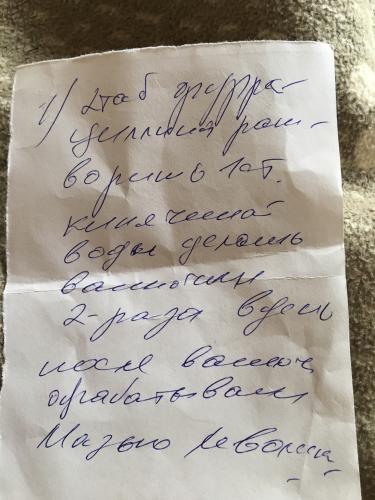 1) 2таб фурра-
циллина раст-
ворить 1 ст.
кипяченой
воды делать
ванночки
2-раза в день
после ванноч
обрабатывать
Мазью Левомик